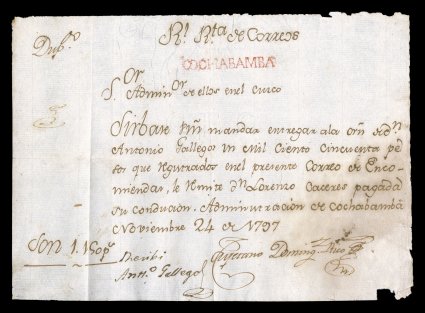 Dup.do
Rl. Rta de Correos
COCHABAMBA
S.or Admin.or de ellos en el Cuzco
Sirbase Vm mandar entregar a la orn de Dn
Antonio Gallego Un mil Ciento Cincuenta pe
sos que rejistrados en el presente Correo de Enco-
miendas, le Remite Dn Lorenzo Caceres pagada
su conducion. Administracion de Cochabamba
Noviembre 24 de 1797
Son 1.150ps
Reciui
Antto Gallego
Cypriano Doming.